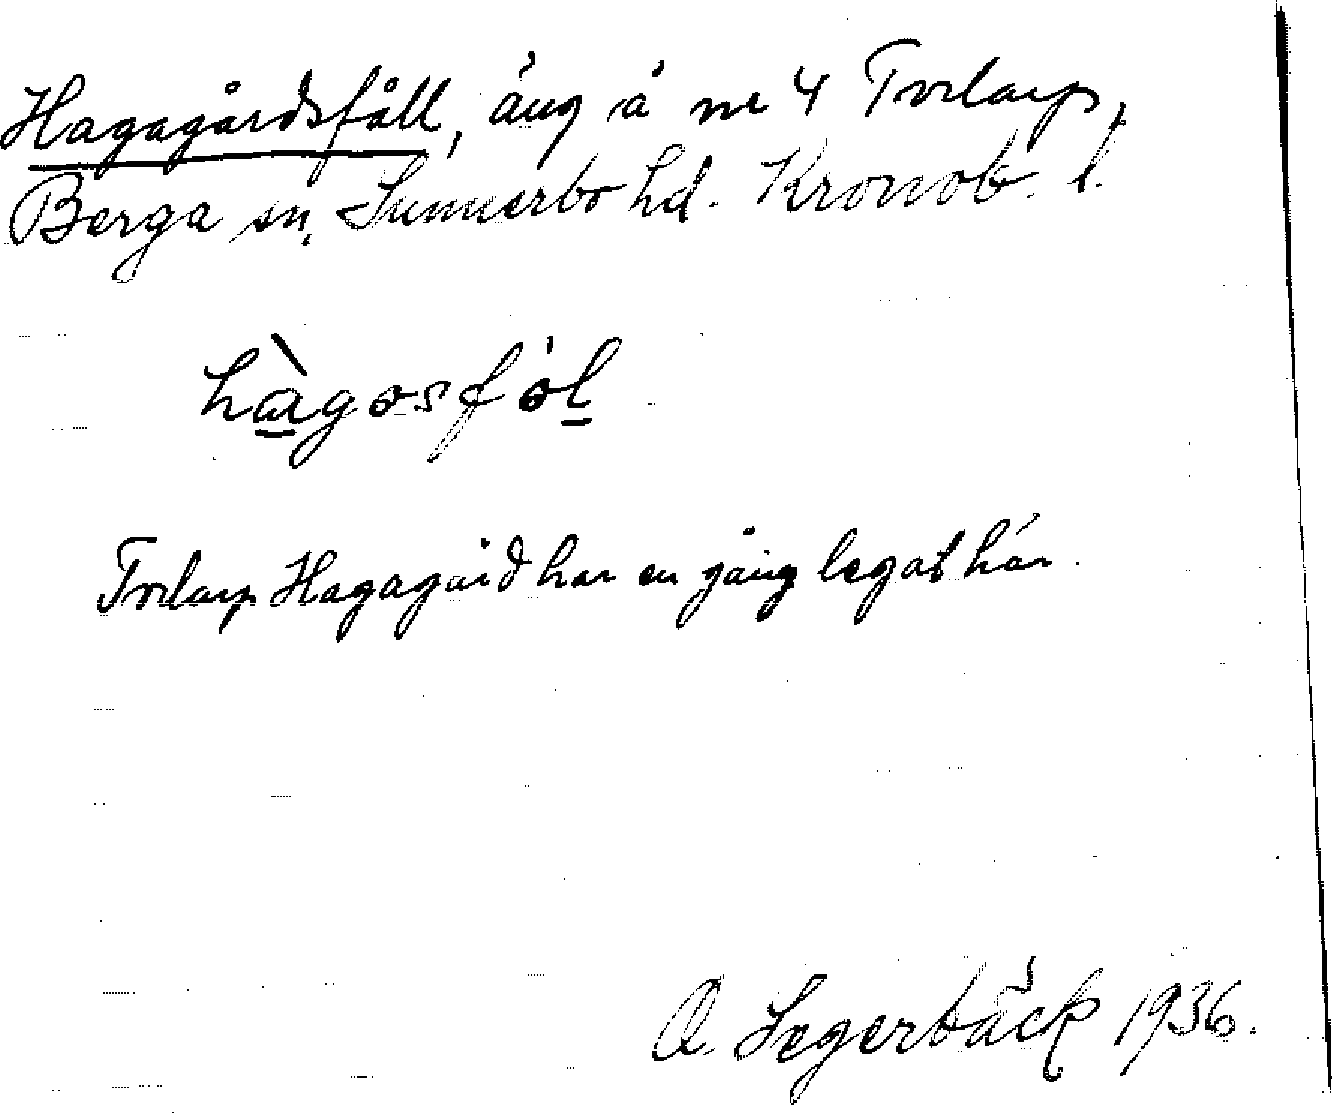 Hagagårdsfåll, äng å nr 4 Torlarp,
Berga sn, Sunnerbo hd. Kronob. l.
hàgosfól
Torlarp Hagagård har en gång legat här.
A. Segerbäck 1936.